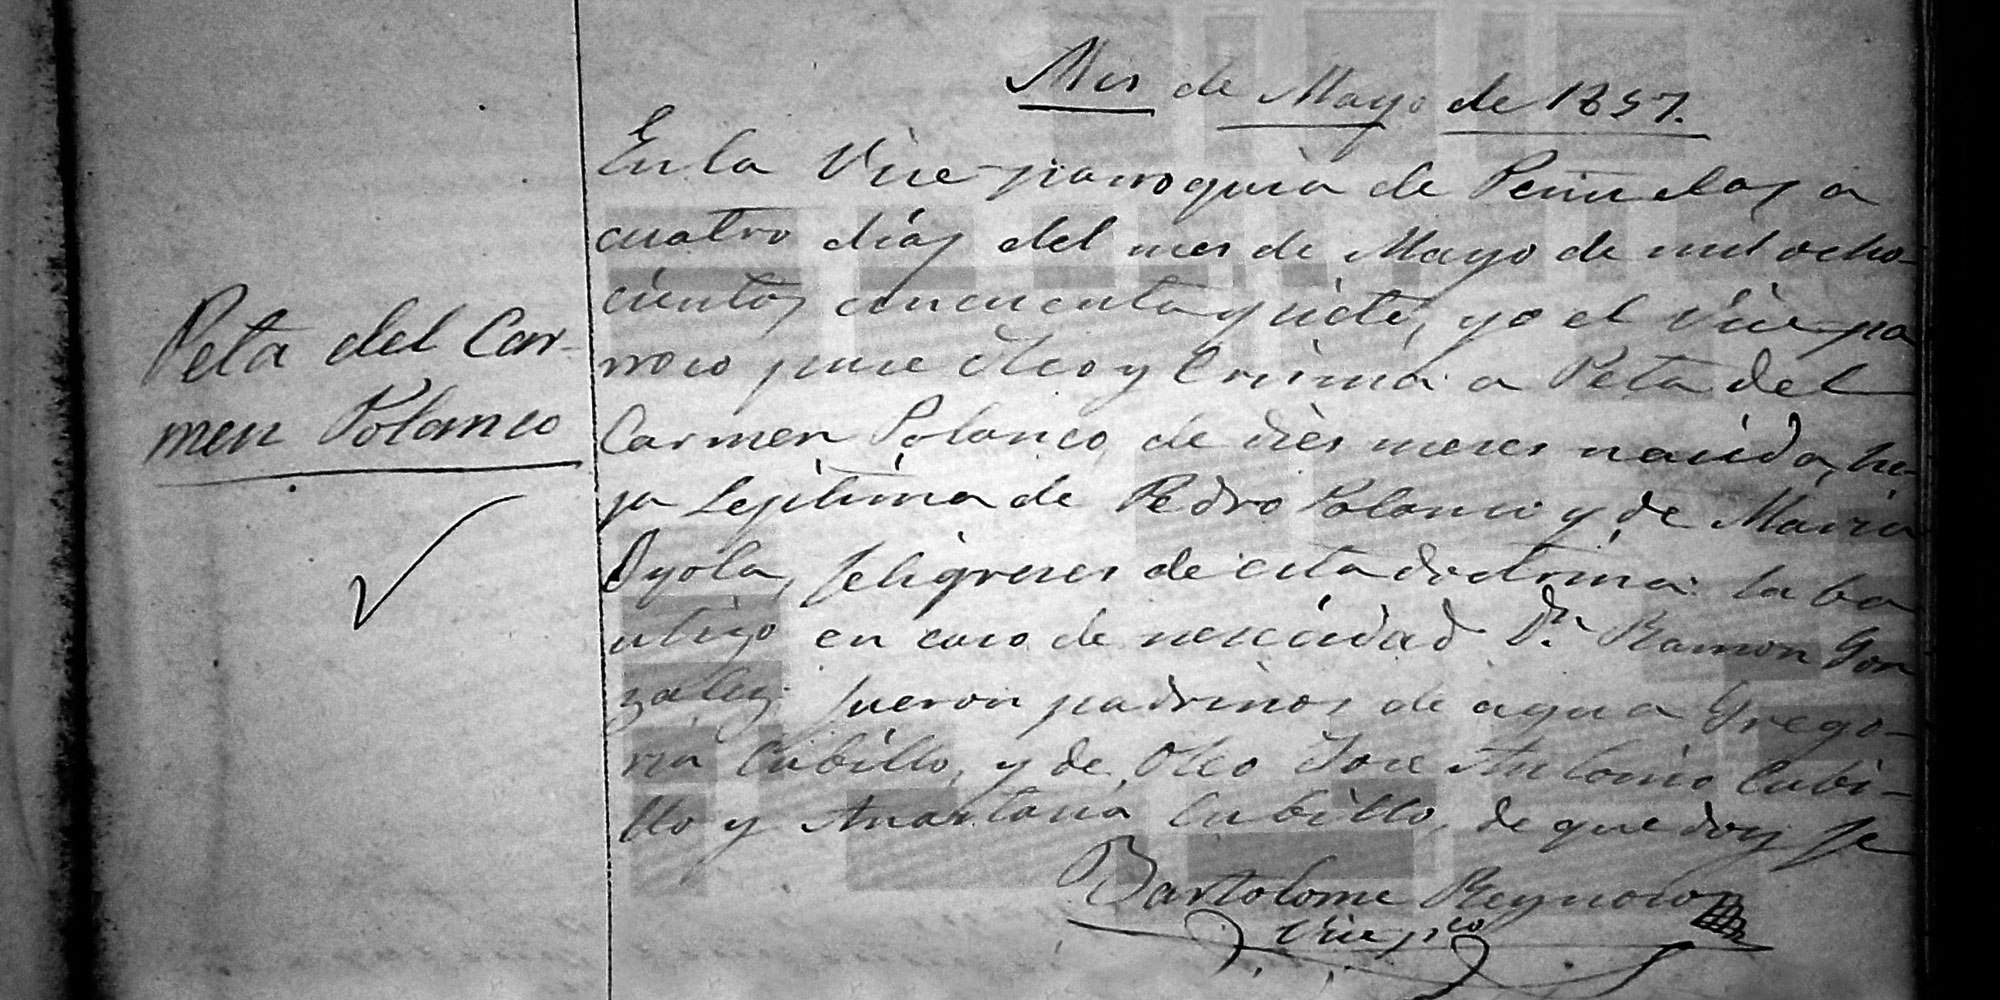 Mes de Mayo de 1857.
En la Vice-parroquia de Peñuelas a
cuatro dias del mes de Mayo de mil ocho-
cientos cincuenta y siete, yo el Vice-pa
rroco puse Oleo y Crisma a Peta del
Carmen Polanco, de dies meses nacida, hi-
ja Lejitima de Pedro Polanco y de Maria
Oyola, feligreses de esta doctrina: la ba
utizo en caso de nesecidad Dn. Ramon Gon
zalez: fueron padrinos de agua Grego-
ria Cubillo, y de Oleo Jose Antonio Cubi-
llo y Anastacia Cubillo, de que doy fe
Bartolome Reynoso
Vice pco
Peta del Car-
men Polanco